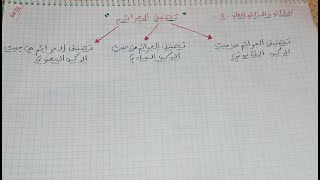 القانون الجنائي العام
تصنيف الجرائم
تصنيف الجرائم من حيث
الركن القانوني
تصنيف الجرائم من حيث
الركن المادي
تصنيف الجرائم من حيث
الركن المعنوي